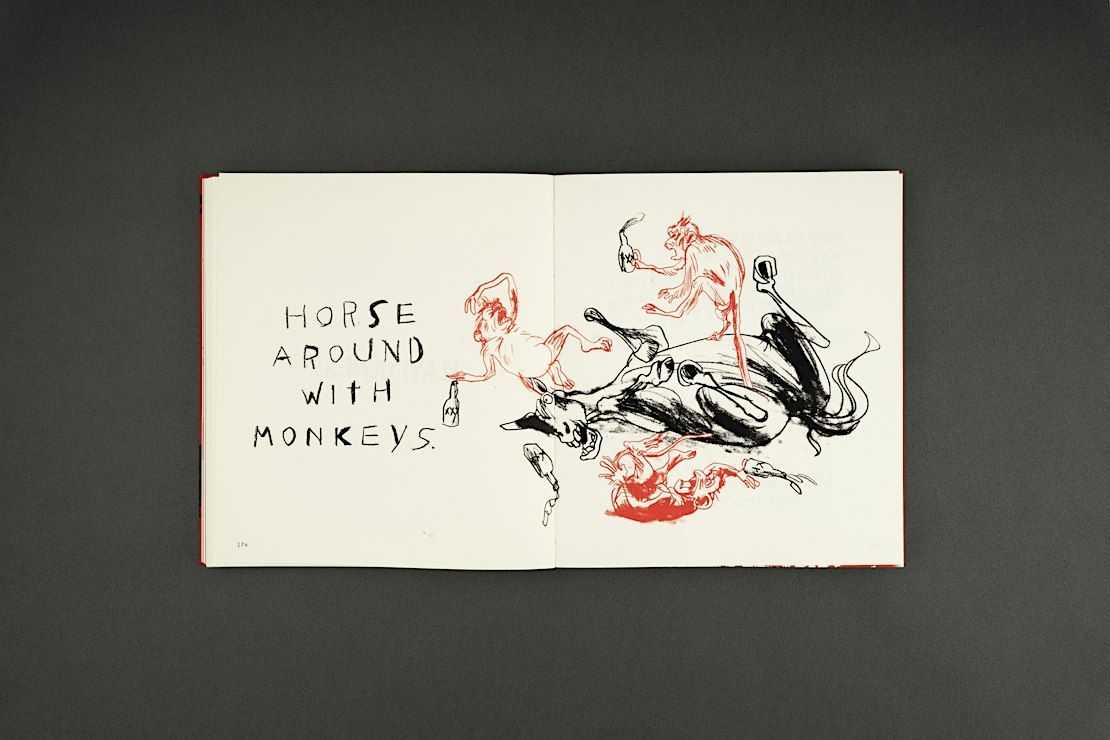 HORSE
AROUND
WITH
MONKEYS.
XX
174